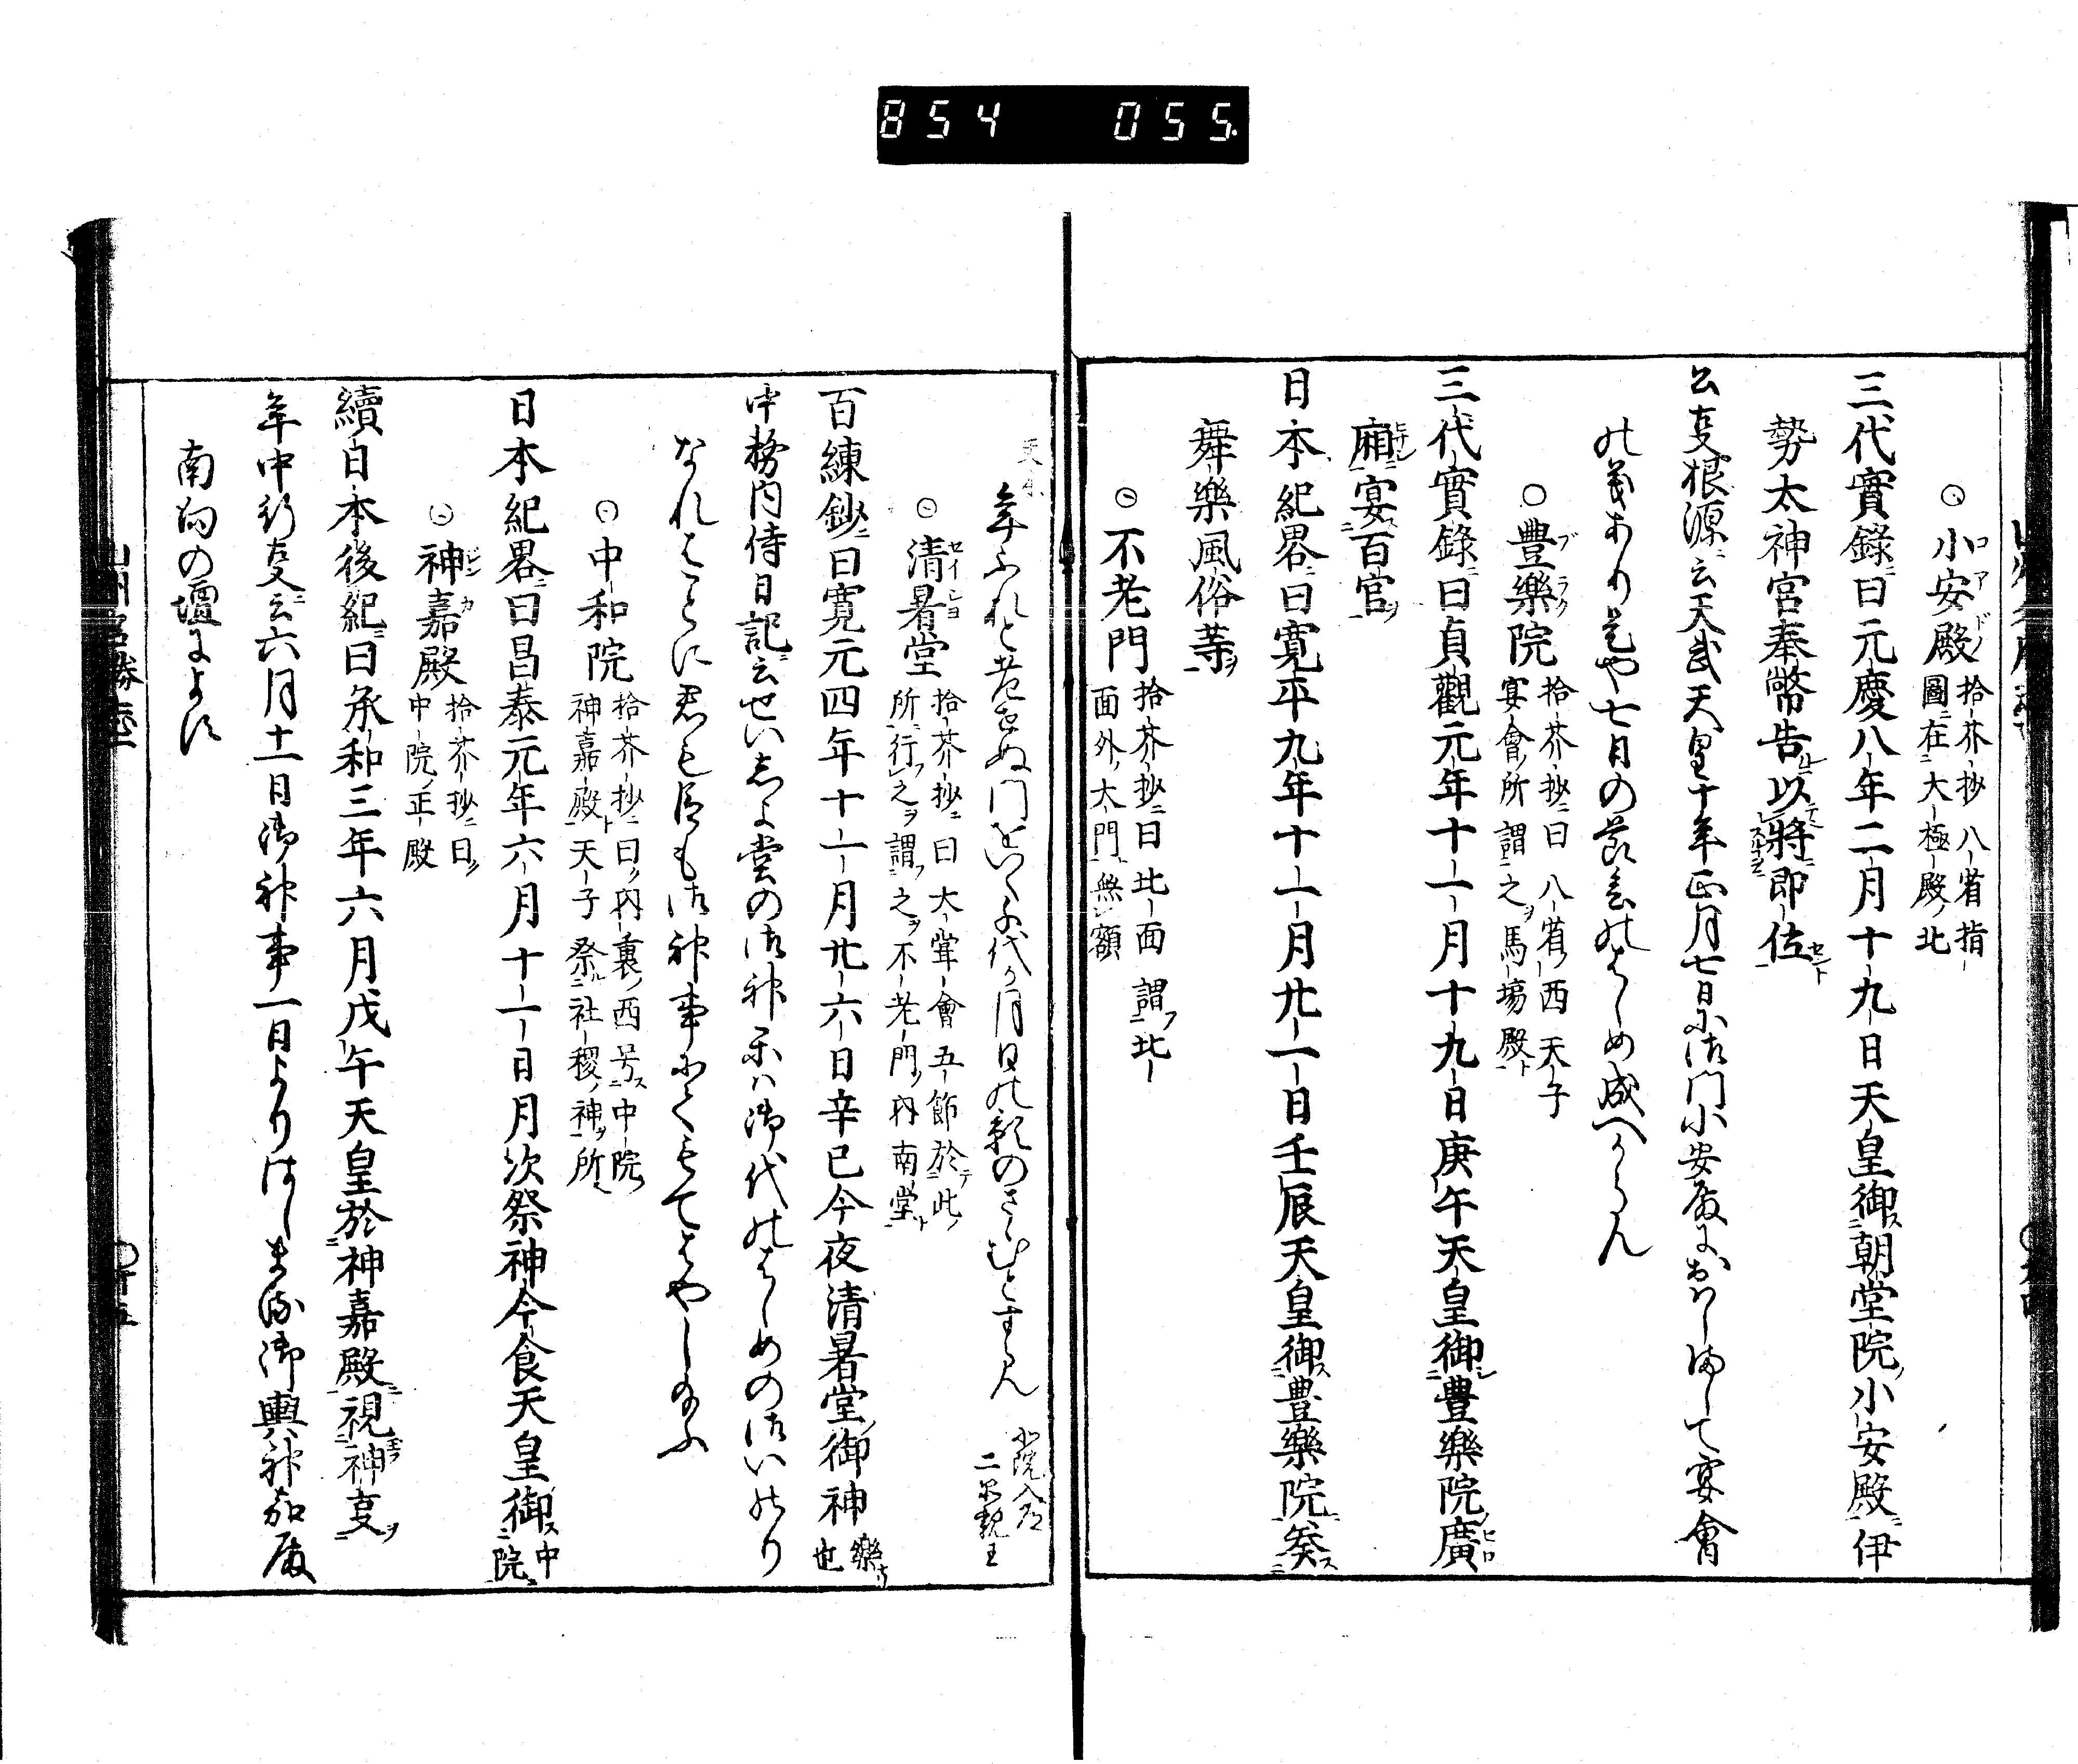 854 055.
○小安殿 拾芥抄八省指
圖在大極殿北
三代實錄曰元慶八年二月十九日天皇御朝堂院小安殿伊
勢太神宮奉幣告以將即位
公事根源云天武天皇十年正月七日に御門小安殿におはしまして宴會
の義あり是や七日の節會のはしめ成へからん
○豐樂院 拾芥抄曰八省西天子
宴會所謂之馬場殿
三代實錄曰貞觀元年十一月十九日庚午天皇御豐樂院廣
廂宴百官
日本紀畧曰寬平九年十一月廿一日壬辰天皇御豊樂院奏
舞樂風俗等
○不老門 拾芥抄曰北面謂北
面外太門無額
年ふれと老せぬ門といく千代か月日の影のさゝむとすらん 入道
二品親王
○清暑堂 拾芥抄曰大甞會五節於此
所行之謂之不老門內南堂
百練鈔曰寬元四年十一月廿六日辛巳今夜清暑堂御神樂
也
中務内侍日記云せいしよ堂の御神樂は御代のはしめの御いのり
なれはことに君も臣も御神事にてもてはやし給ふ
○中和院 拾芥抄曰內裏西号中院
神嘉殿天子祭社稷神所
日本紀畧曰昌泰元年六月十一日月次祭神今食天皇御中
院
○神嘉殿 拾芥抄曰
中院正殿
續日本後紀曰承和三年六月戊午天皇於神嘉殿視神事
年中行事云六月十一日御神事一日よりはしまる御輿神嘉殿
南向の壇によす
山州名勝志